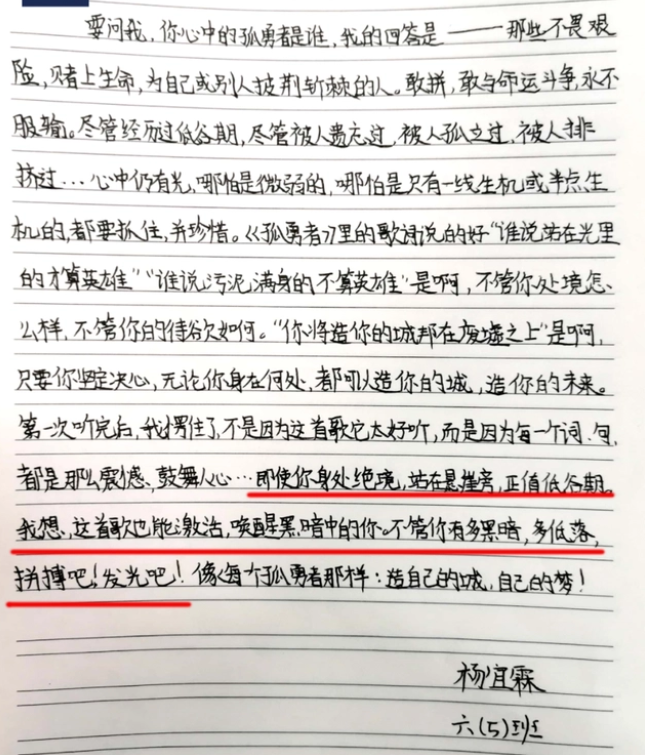 要问我,你心中的孤勇者是谁,我的回答是——那些不畏艰
险,赌上生命,为自己或别人披荆斩棘的人。敢拼,敢与命运斗争,永不
服输。尽管经历过低谷期,尽管被人遗忘过,被人孤立过,被人排
挤过…心中仍有光,哪怕是微弱的,哪怕是只有一线生机或半点生
机的,都要抓住,并珍惜。《孤勇者》里的歌词说的好“谁说站在光里
的才算英雄”“谁说污泥满身的不算英雄”是啊,不管你处境怎
么样,不管你的待欤如何。“你将造你的城邦在废墟之上”是啊,
只要你坚定决心,无论你身在何处,都可以造你的城,造你的未来。
第一次听完后,我愣住了,不是因为这首歌它太好听,而是因为每一个词、句,
都是那么震憾、鼓舞人心…即使你身处绝境,站在悬崖旁,正值低谷期。
我想,这首歌也能激活,唤醒黑暗中的你。不管你有多黑暗,多低落,
拼搏吧!发光吧!像每个孤勇者那样:造自己的城,自己的梦!
杨宜霖
六(5)班